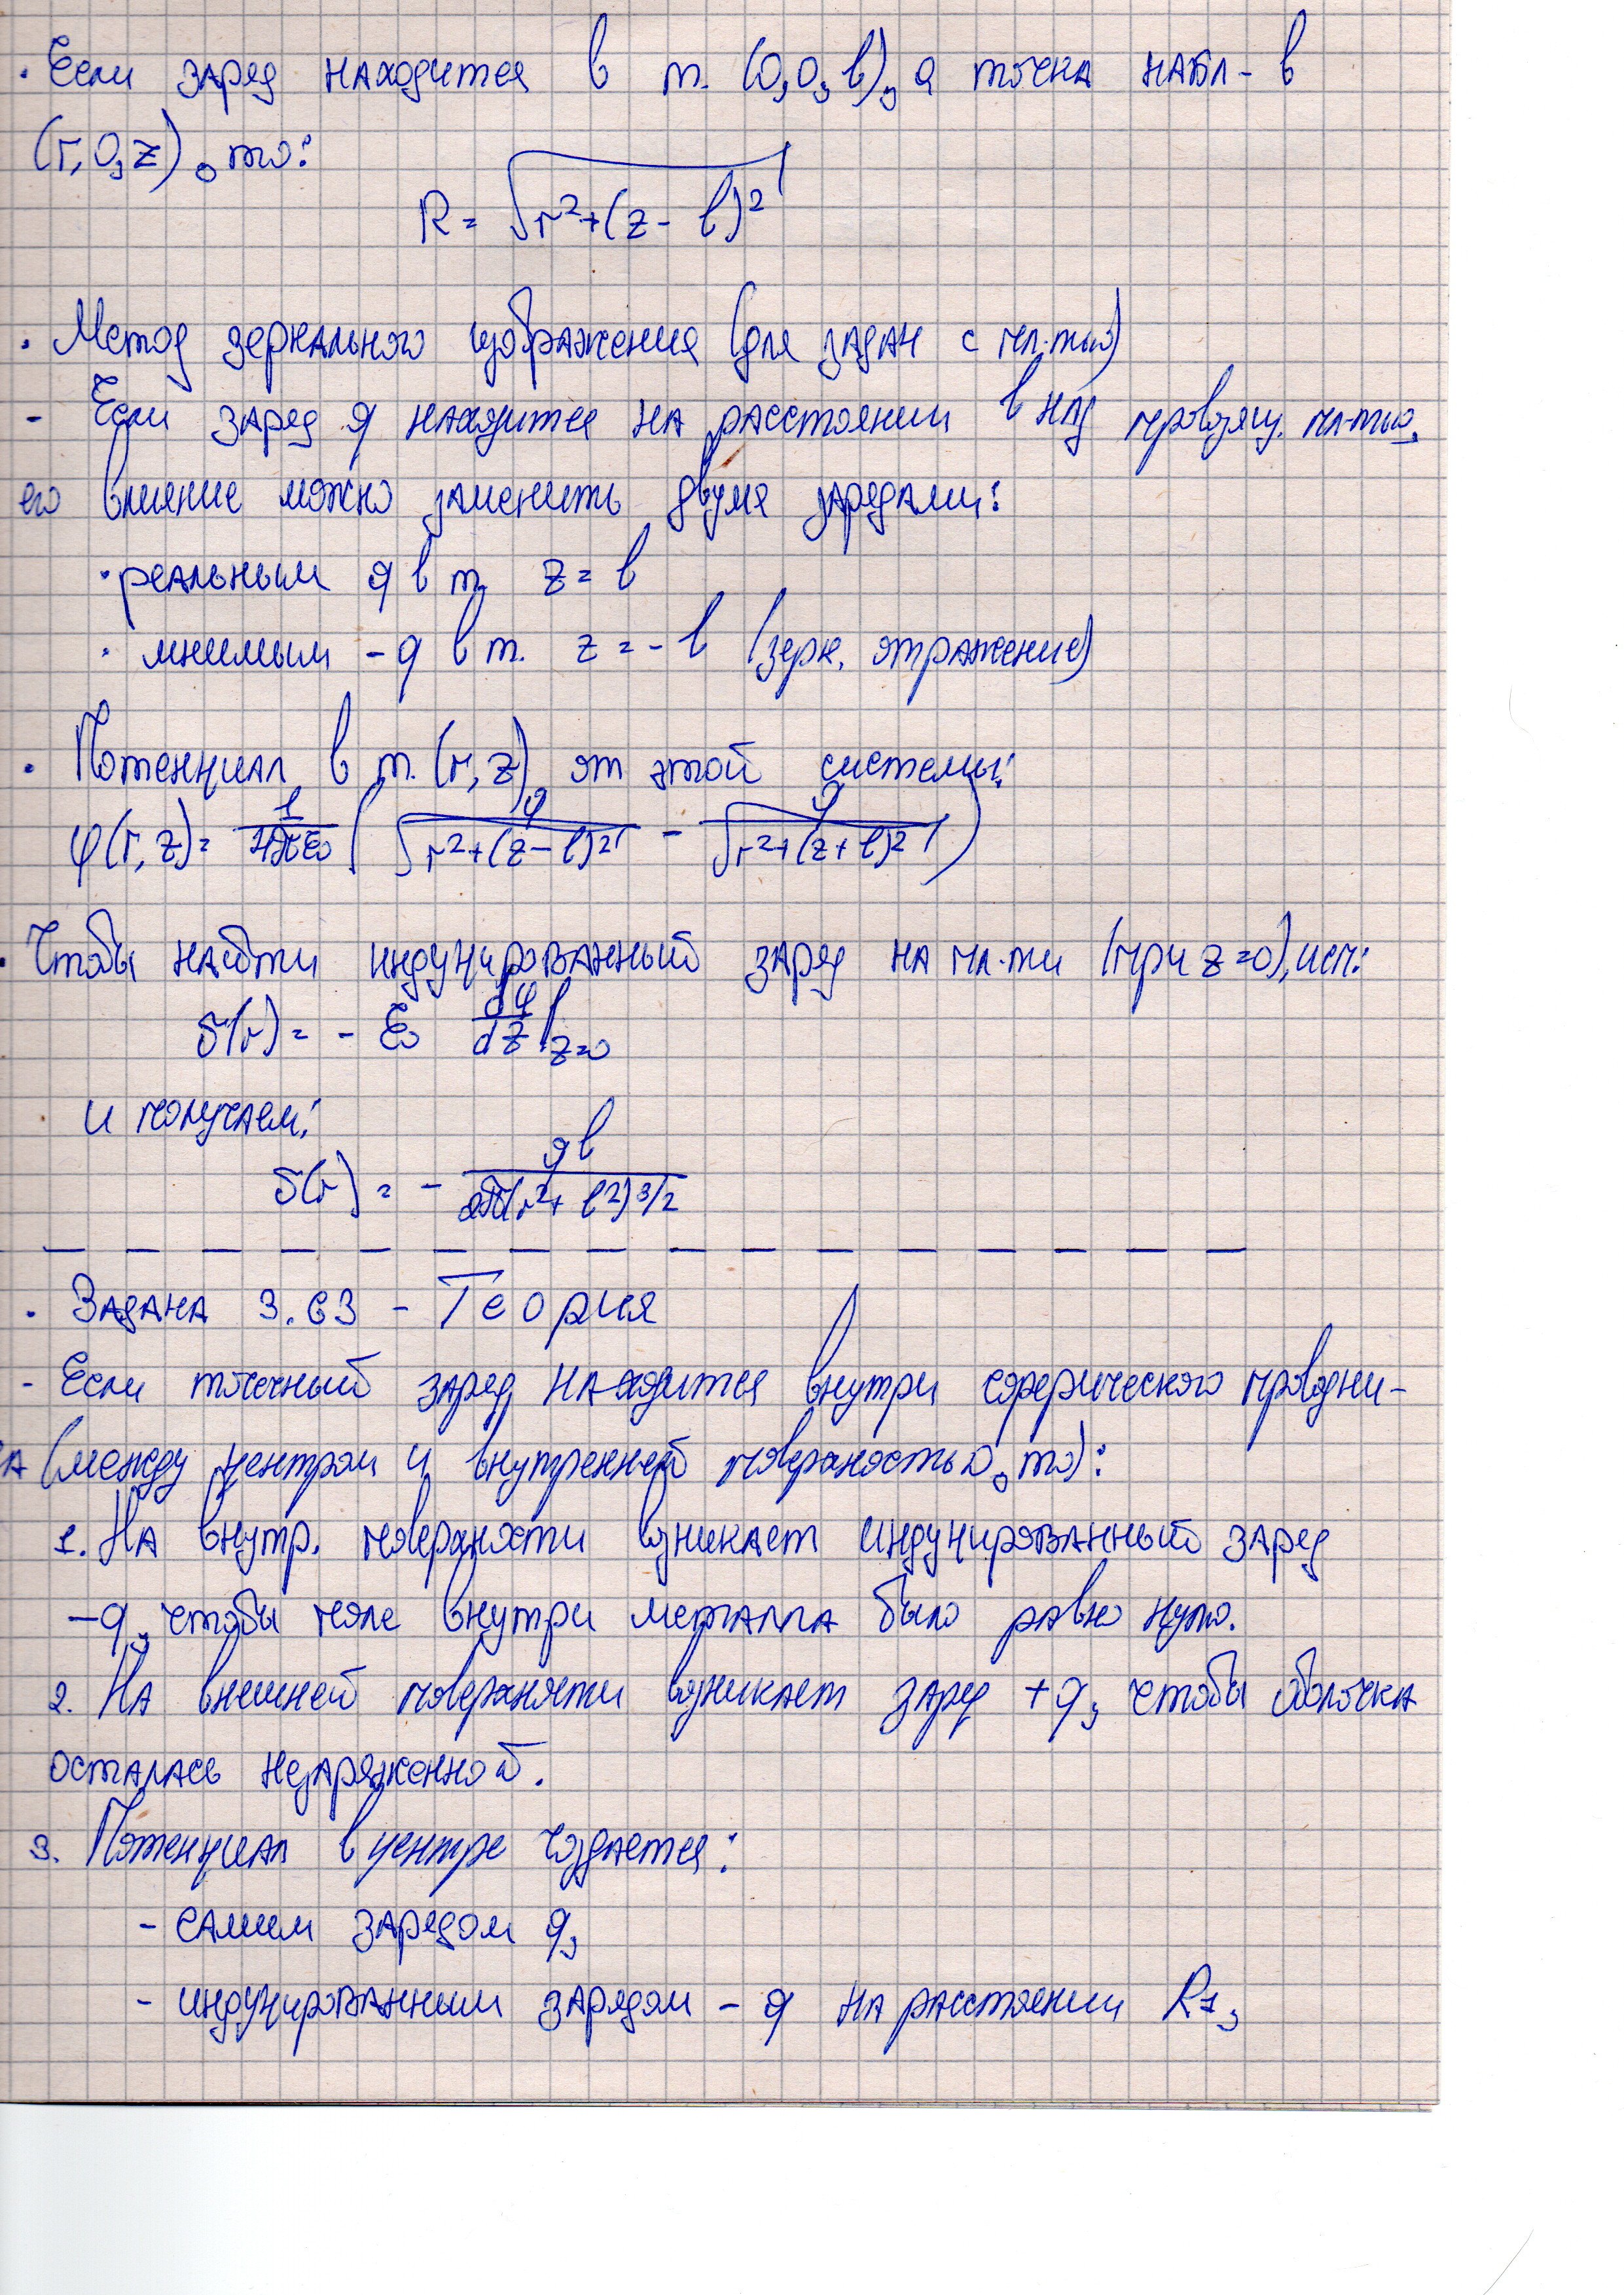 · Если заряд находится в т. (0,0,b), а точка набл- в
(r,0,z), то:
R = √(r²+(z-b)²)
· Метод зеркального изображения (для задач с пл-тью)
- Если заряд q находится на расстоянии b над проводящ. пл-тью,
его влияние можно заменить двумя зарядами:
· реальным q в т. z = b
· мнимым -q в т. z = -b (зерк. отражение)
· Потенциал в т. (r,z) от этой системы:
φ(r,z) = 1/(4πε₀) (q/√(r²+(z-b)²) - q/√(r²+(z+b)²))
· Чтобы найти индуцированный заряд на пл-ти (при z=0), исп:
σ(r) = - ε₀ dφ/dz|z=0
и получаем:
σ(r) = - qb/(2π(r²+b²)^3/2)
· Задача 3.63 - Теория
- Если точечный заряд находится внутри сферического проводни-
ка (между центром и внутренней поверхностью, то):
1. На внутр. поверхности возникает индуцированный заряд
-q, чтобы поле внутри металла было равно нулю.
2. На внешней поверхности возникает заряд +q, чтобы оболочка
осталась незаряженной.
3. Потенциал в центре создается:
- самим зарядом q,
- индуцированным зарядом -q на расстоянии R₁,